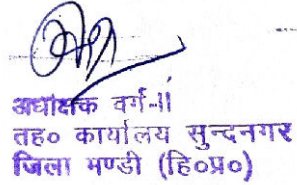 अधीक्षक वर्ग-II
तह० कार्यालय सुन्दनगर
जिला मण्डी (हि०प्र०)